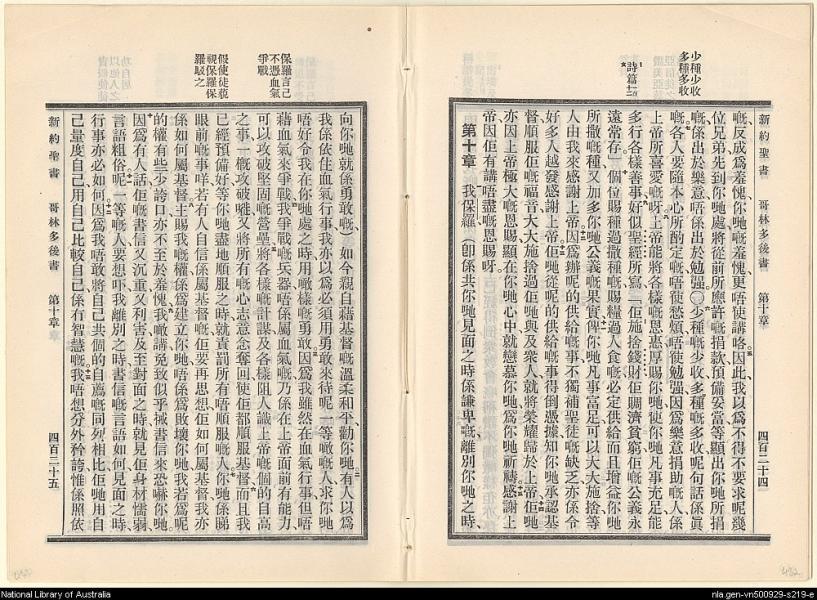 少種少收
多種多收
新約聖書 哥林多後書 第十章 四百二十四
嘅、反成爲羞愧你哋嘅羞愧更唔使講咯、因此我以爲不得不要求呢幾
位兄弟先到你哋處、將從前所應許嘅捐款預備妥當等顯出你哋所捐
嘅係出於樂意唔係出於勉強○少種嘅少收多種嘅多收呢句話係眞
嘅各人要隨本心所酌定嘅唔使愁煩唔使勉強因爲樂意捐助嘅人係
上帝所喜愛嘅呀上帝能將各樣嘅恩惠厚賜你哋使你哋凡事充足能
多行各樣善事好似聖經所寫「佢施捨錢財佢賙濟貧窮佢嘅公義永
遠常存」個位賜種過撒種嘅賜糧過人食嘅必定供給而且增益你哋
所撒嘅種又加多你哋公義嘅果實俾你哋凡事富足可以大大施捨等
人由我來感謝上帝因爲辦呢的供給嘅事不獨補聖徒嘅缺乏亦係令
好多人越發感謝上帝佢哋從呢的供給嘅事得倒憑據知你哋承認基
督順服佢嘅福音大大施捨過佢哋與及衆人就將榮耀歸於上帝佢哋
亦因上帝極大嘅恩賜顯在你哋心中就戀慕你哋爲你哋祈禱感謝上
帝因佢有講唔盡嘅恩賜呀
第十章 我保羅(卽係共你哋見面之時係謙卑嘅離別你哋之時、
保羅言己
不憑血氣
爭戰
假使徒藐
視保羅保
羅駁之
向你哋就係勇敢嘅、)如今親自藉基督嘅溫柔和平勸你哋有人以爲
我係依住血氣行事我亦以爲必須用勇敢來待呢一等嘅人求你哋
唔好令我在你哋處之時用噉樣嘅勇敢因爲我雖然在血氣行事但唔
藉血氣來爭戰我爭戰嘅兵器唔係屬血氣嘅乃係在上帝面前有能力
可以攻破堅固嘅營壘將各樣嘅計謀及各樣阻人識上帝嘅個的自高
之事一槪攻破嘥又將所有嘅心志意念奪回使佢都順服基督而且我
已經預備好等你哋盡地順服之時就責罰所有唔順服嘅人你哋係睇
眼前嘅事咩若有人自信係屬基督嘅佢要再思想佢如何屬基督我亦
係如何屬基督主賜我嘅權係爲建立你哋唔係爲敗壞你哋我若爲呢
的權有些少誇口亦不至於羞愧我噉講免致似乎掁書信來恐嚇你哋
因爲有人話佢嘅書信又沉重又利害及至對面之時就見佢身材懦弱
言語粗俗呢一等嘅人要想吓我離別之時書信嘅言語如何見面之時
行事亦必如何因爲我唔敢將自己共個的自薦嘅同列相比佢哋用自
己量度自己用自己比較自己係冇智慧嘅我唔想分外矜誇惟係照依
新約聖書 哥林多後書 第十章 四百二十五
National Library of Australia
nla.gen-vn500929-s219-e